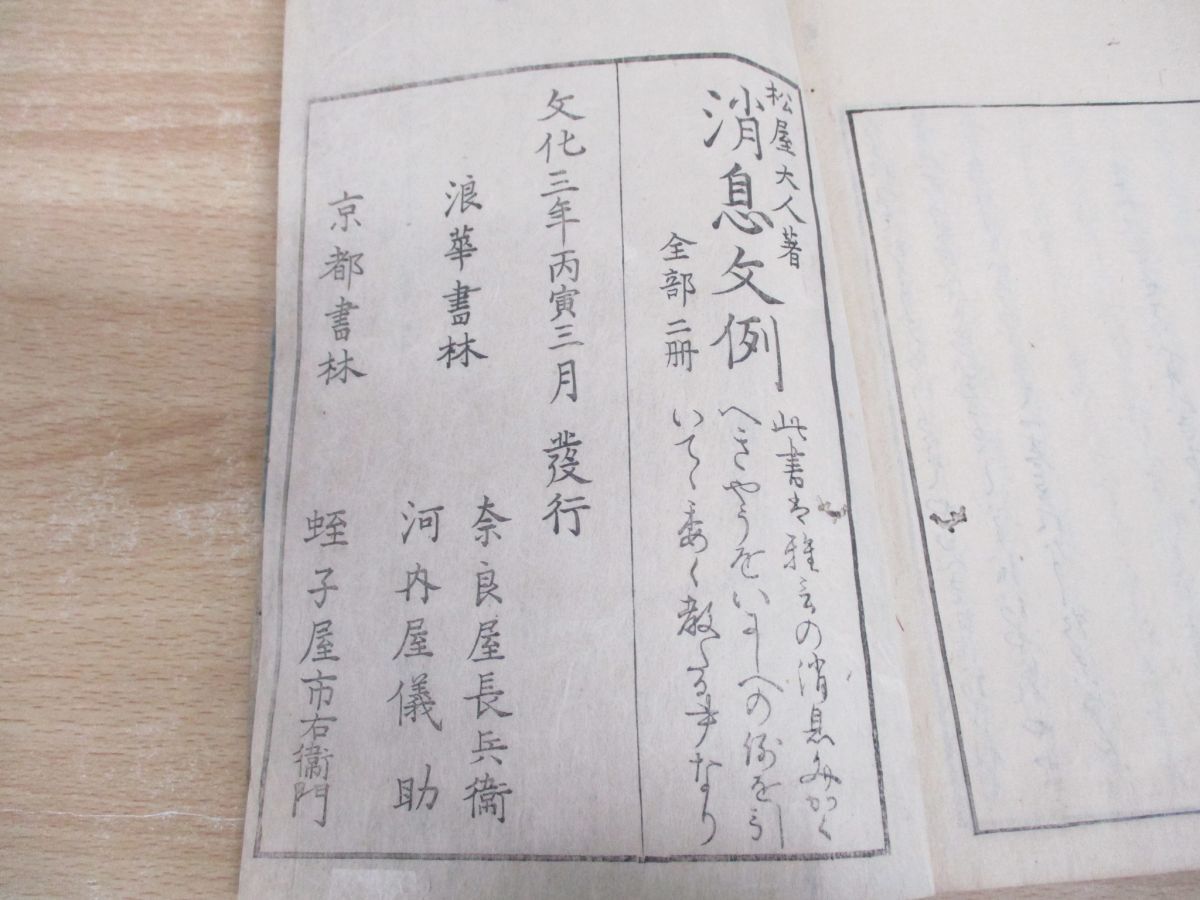 松屋大人著
消息文例
全部二冊
此書は雅言の消息文かく
へきやうをいにしへの例を引
いてゝ委く教たる書なり
文化三年丙寅三月發行
浪華書林
奈良屋長兵衞
河内屋儀助
京都書林
蛭子屋市右衞門